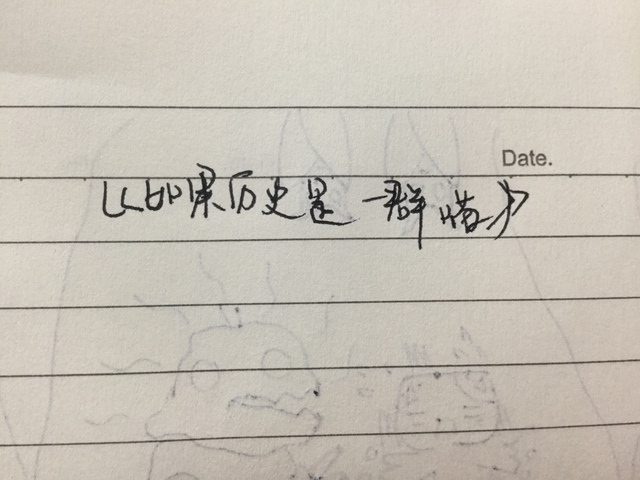 Date.
《如果历史是一群喵》